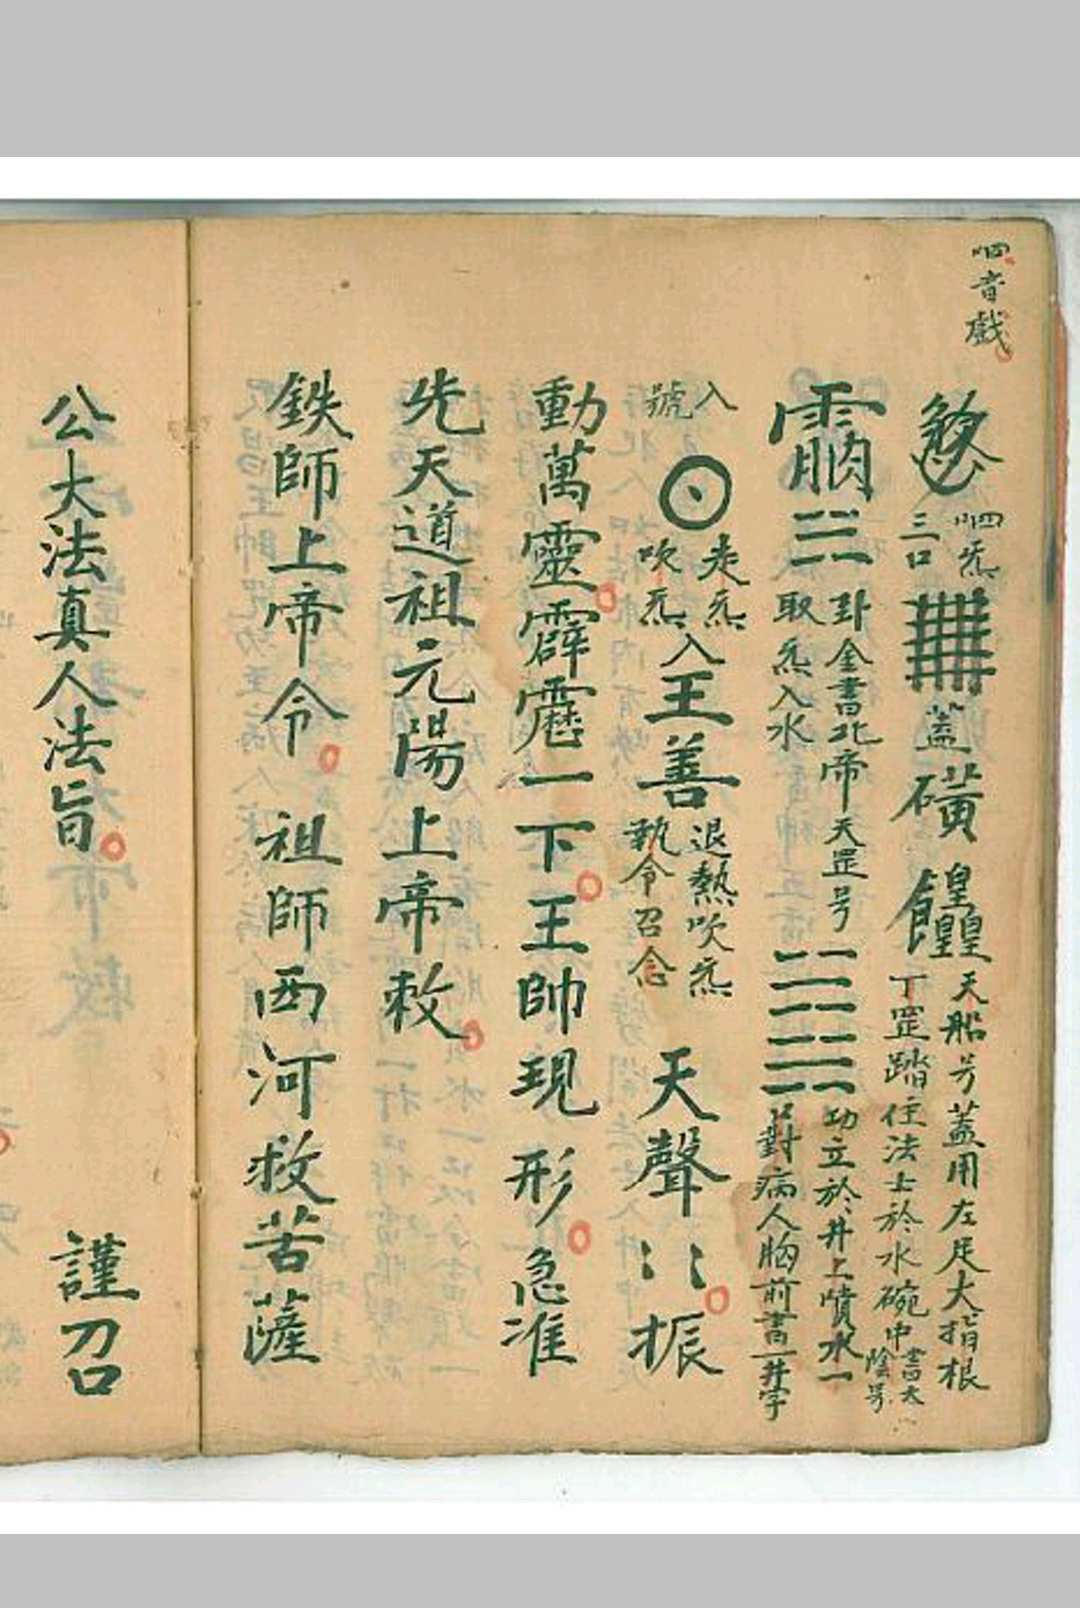 呬音戲
呬炁三口
蓋
磺
天船号蓋用左足大指根
丁罡踏住法士於水碗中書太陰号
卦金書北帝
取炁入水
天罡号
功立於井上噴水一口
對病人胸前書一井字
入號
走炁吹炁
入王善
退熱吹炁
執令召念
天聲〻振
動萬靈霹靂一下王帥現形急准
先天道祖元陽上帝敕
鉄師上帝令祖師西河救苦薩
公大法真人法旨謹召